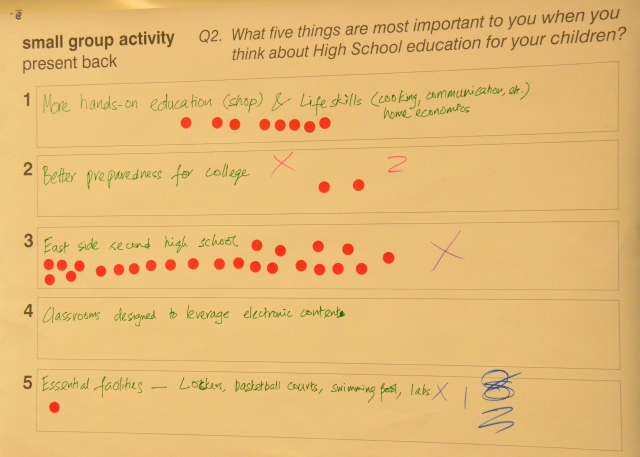 small group activity
present back
Q2. What five things are most important to you when you
think about High School education for your children?
1 More hands-on education (shop) & Life skills (cooking, communication, etc.)
home economics
2 Better preparedness for college X 2
3 East side second high school X
4 Classrooms designed to leverage electronic contents
5 Essential facilities — Lockers, basketball courts, swimming pool, labs X 1